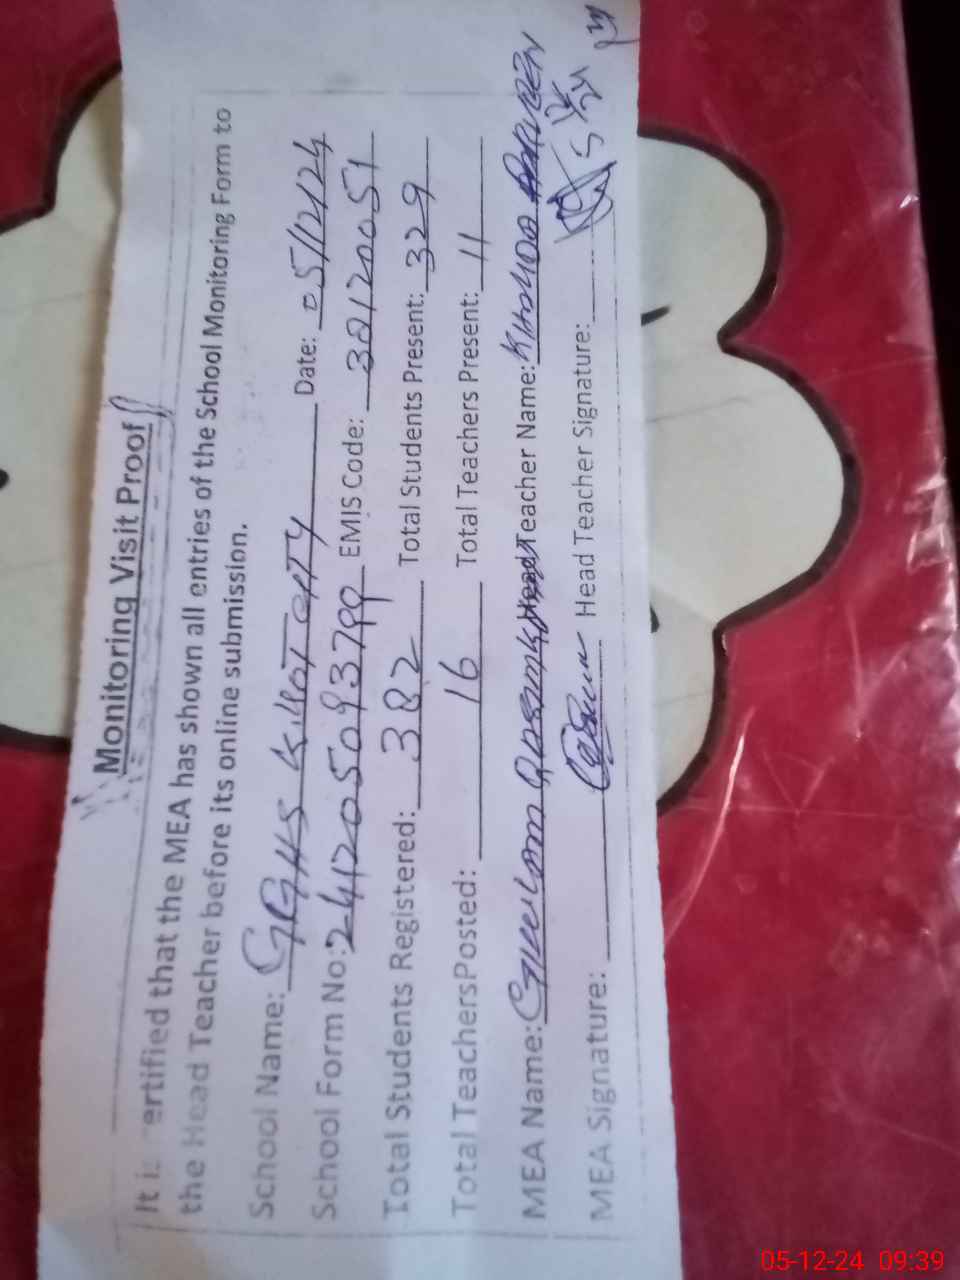 Monitoring Visit Proof
It is certified that the MEA has shown all entries of the School Monitoring Form to
the Head Teacher before its online submission.
School Name: GGHS Date: 05/12/24
School Form No: 24120509379 EMIS Code: 38120051
Total Students Registered: 382 Total Students Present: 329
Total TeachersPosted: 16 Total Teachers Present: 11
MEA Name: Ghulam Head Teacher Name: PARVEEN
MEA Signature: Head Teacher Signature:
05-12-24 09:39